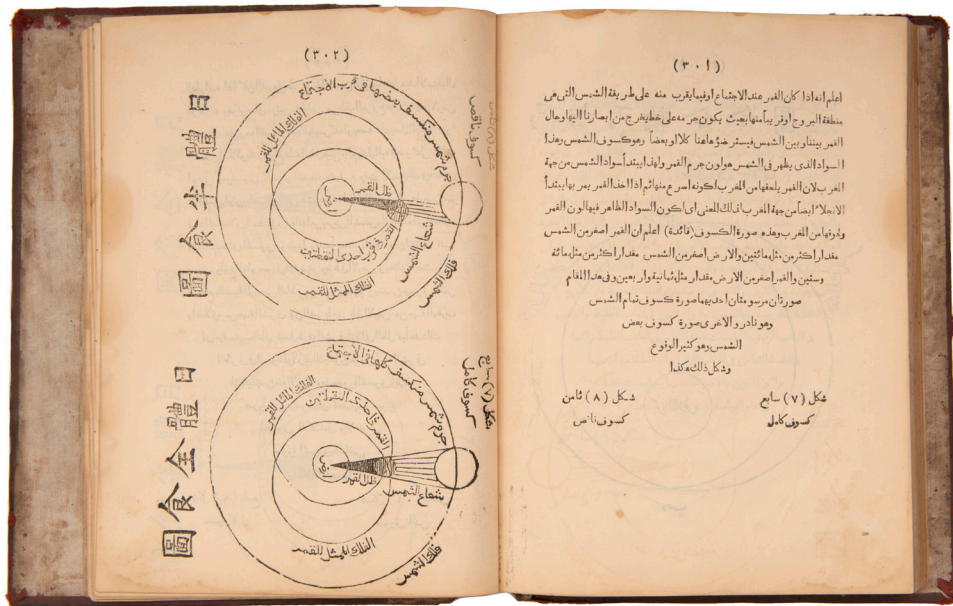 (٣٠١)
اعلم انه اذا كان القمر عند الاجتماع او فيما يقرب منه على طريقة الشمس التى هى
منطقة البروج او قريبا منها بحيث يكون جرمه على خط يخرج من ابصارنا اليها وحال
القمر بيننا وبين الشمس فيستر ضؤها عنا كلا او بعضا وهو كسوف الشمس وهذا
السواد الذى يظهر فى الشمس هو لون جرم القمر ولهذا يبتدأ سواد الشمس من جهة
المغرب لان القمر يلحقها من المغرب لكونه اسرع منها ثم اذا اخذ القمر يمر بها يبتدأ
الانجلاء ايضا من جهة المغرب لذلك المعنى اى لكون السواد الظاهر فيها لون القمر
من المغرب وهذه صورة الكسوف (فائدة) اعلم ان القمر اصغر من الشمس
مقدار اكثر من مثل مائتين والارض اصغر من الشمس مقدار اكثر من مثل مائة
وستين والقمر اصغر من الارض مقدار مثل ثمانية واربعين وفى هذا المقام
صورتان مرسومتان احديهما صورة كسوف تمام الشمس
وهو نادر والاخرى صورة كسوف بعض
الشمس وهو كثير الوقوع
وشكل ذلك هكذا
شكل (٧) سابع
كسوف كامل
شكل (٨) ثامن
كسوف ناقص
(٣٠٢)
شكل (٨) ثامن
كسوف ناقص
جرم شمس منكسف بعضها فى قرب الاجتماع
الفلك المائل للقمر
ظل القمر
القمر فى قرب احدى النقطتين
شعاع الشمس
الفلك الممثل للقمر
فلك الشمس
日體半食圖
شكل (٧) سابع
كسوف كامل
جرم شمس منكسف كلها فى الاجتماع
الفلك المائل للقمر
القمر فى احدى النقطتين
ظل القمر
شعاع الشمس
الفلك الممثل للقمر
فلك الشمس
日體全食圖